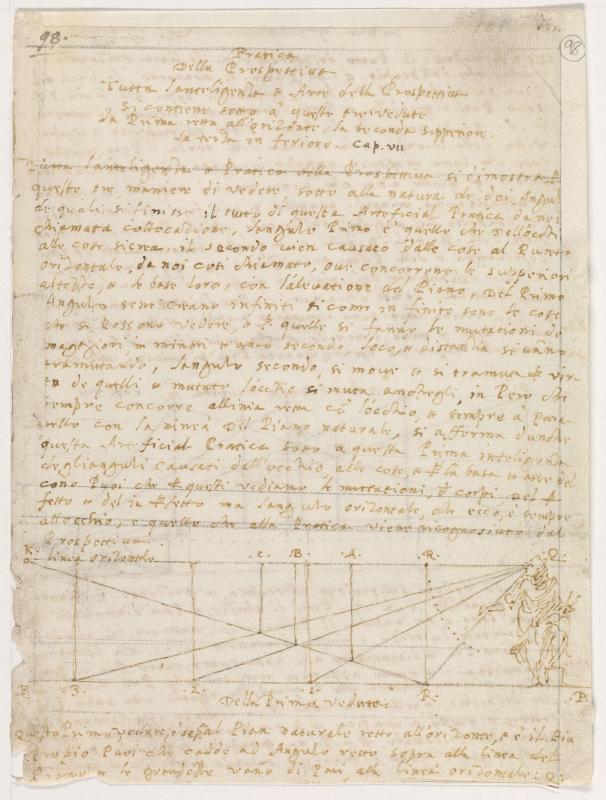 98.
98
Pratica
Della Prospettiva
Tutta l'anteligenza e Arte della Prospettiva
si contiene sotto à queste tre vedute
La Prima retta all'orizonte, la seconda superiore.
la terza in feriore. Cap. VII
Tutta l'anteligenza e Pratica della Prospettiva si dimostra
queste tre maniere di vedere sotto alla natura de doi Angul
de quali si finisse il tutto di questa Arteficial Pratica da noi
chiamata collocatione, l'angulo Primo è quello che dell'occhi
alle cose si crea, il secondo vien causato dalle cose al Punto
orizontale, da noi cosi chiamato, ove concorrono le superiori
altezze, e le base loro, con l'alevatione del Piano, Del Primo
Angulo sene creano infiniti si come in finite sono le cose
che si Possono vedere, e quelle si fanno le mutationi de
maggiori in minori e anco secondo loco, e distantia si vanno
tramutando, l'angulo secondo, si move e si tramuta vir
tu de quelli e mutato l'occhio si muta anchegli, in Pero che
sempre concorre allinia retta l'occhio, e sempre à para
rello con la Linea del Piano naturale, si afferma dunque
questa Arteficial Pratica sotto a questa Prima inteligenza
degli anguli causati dall'occhio alle cose, e la basa e asse del
cono Puoi che queste vediamo le muttationi, corpi Del
fetto e del in fetto ma l'angulo orizontale, che ecco, è sempre
all'occhio, e quello che alla Pratica viene ricognosciuto dal
Prospettivo.
K. linea orizontale .C. .B. .A. .R. .Q.
3. 2. 1. R. P.
Della Prima veduta
Questo Primo vedere è sopra al Pian naturale retto all'orizonte, e è il Piu
Propio Puoi che cadde ad Angulo retto sopra alla linea del
Piano e le grandezze vano di Pari, alla linea orizontale: